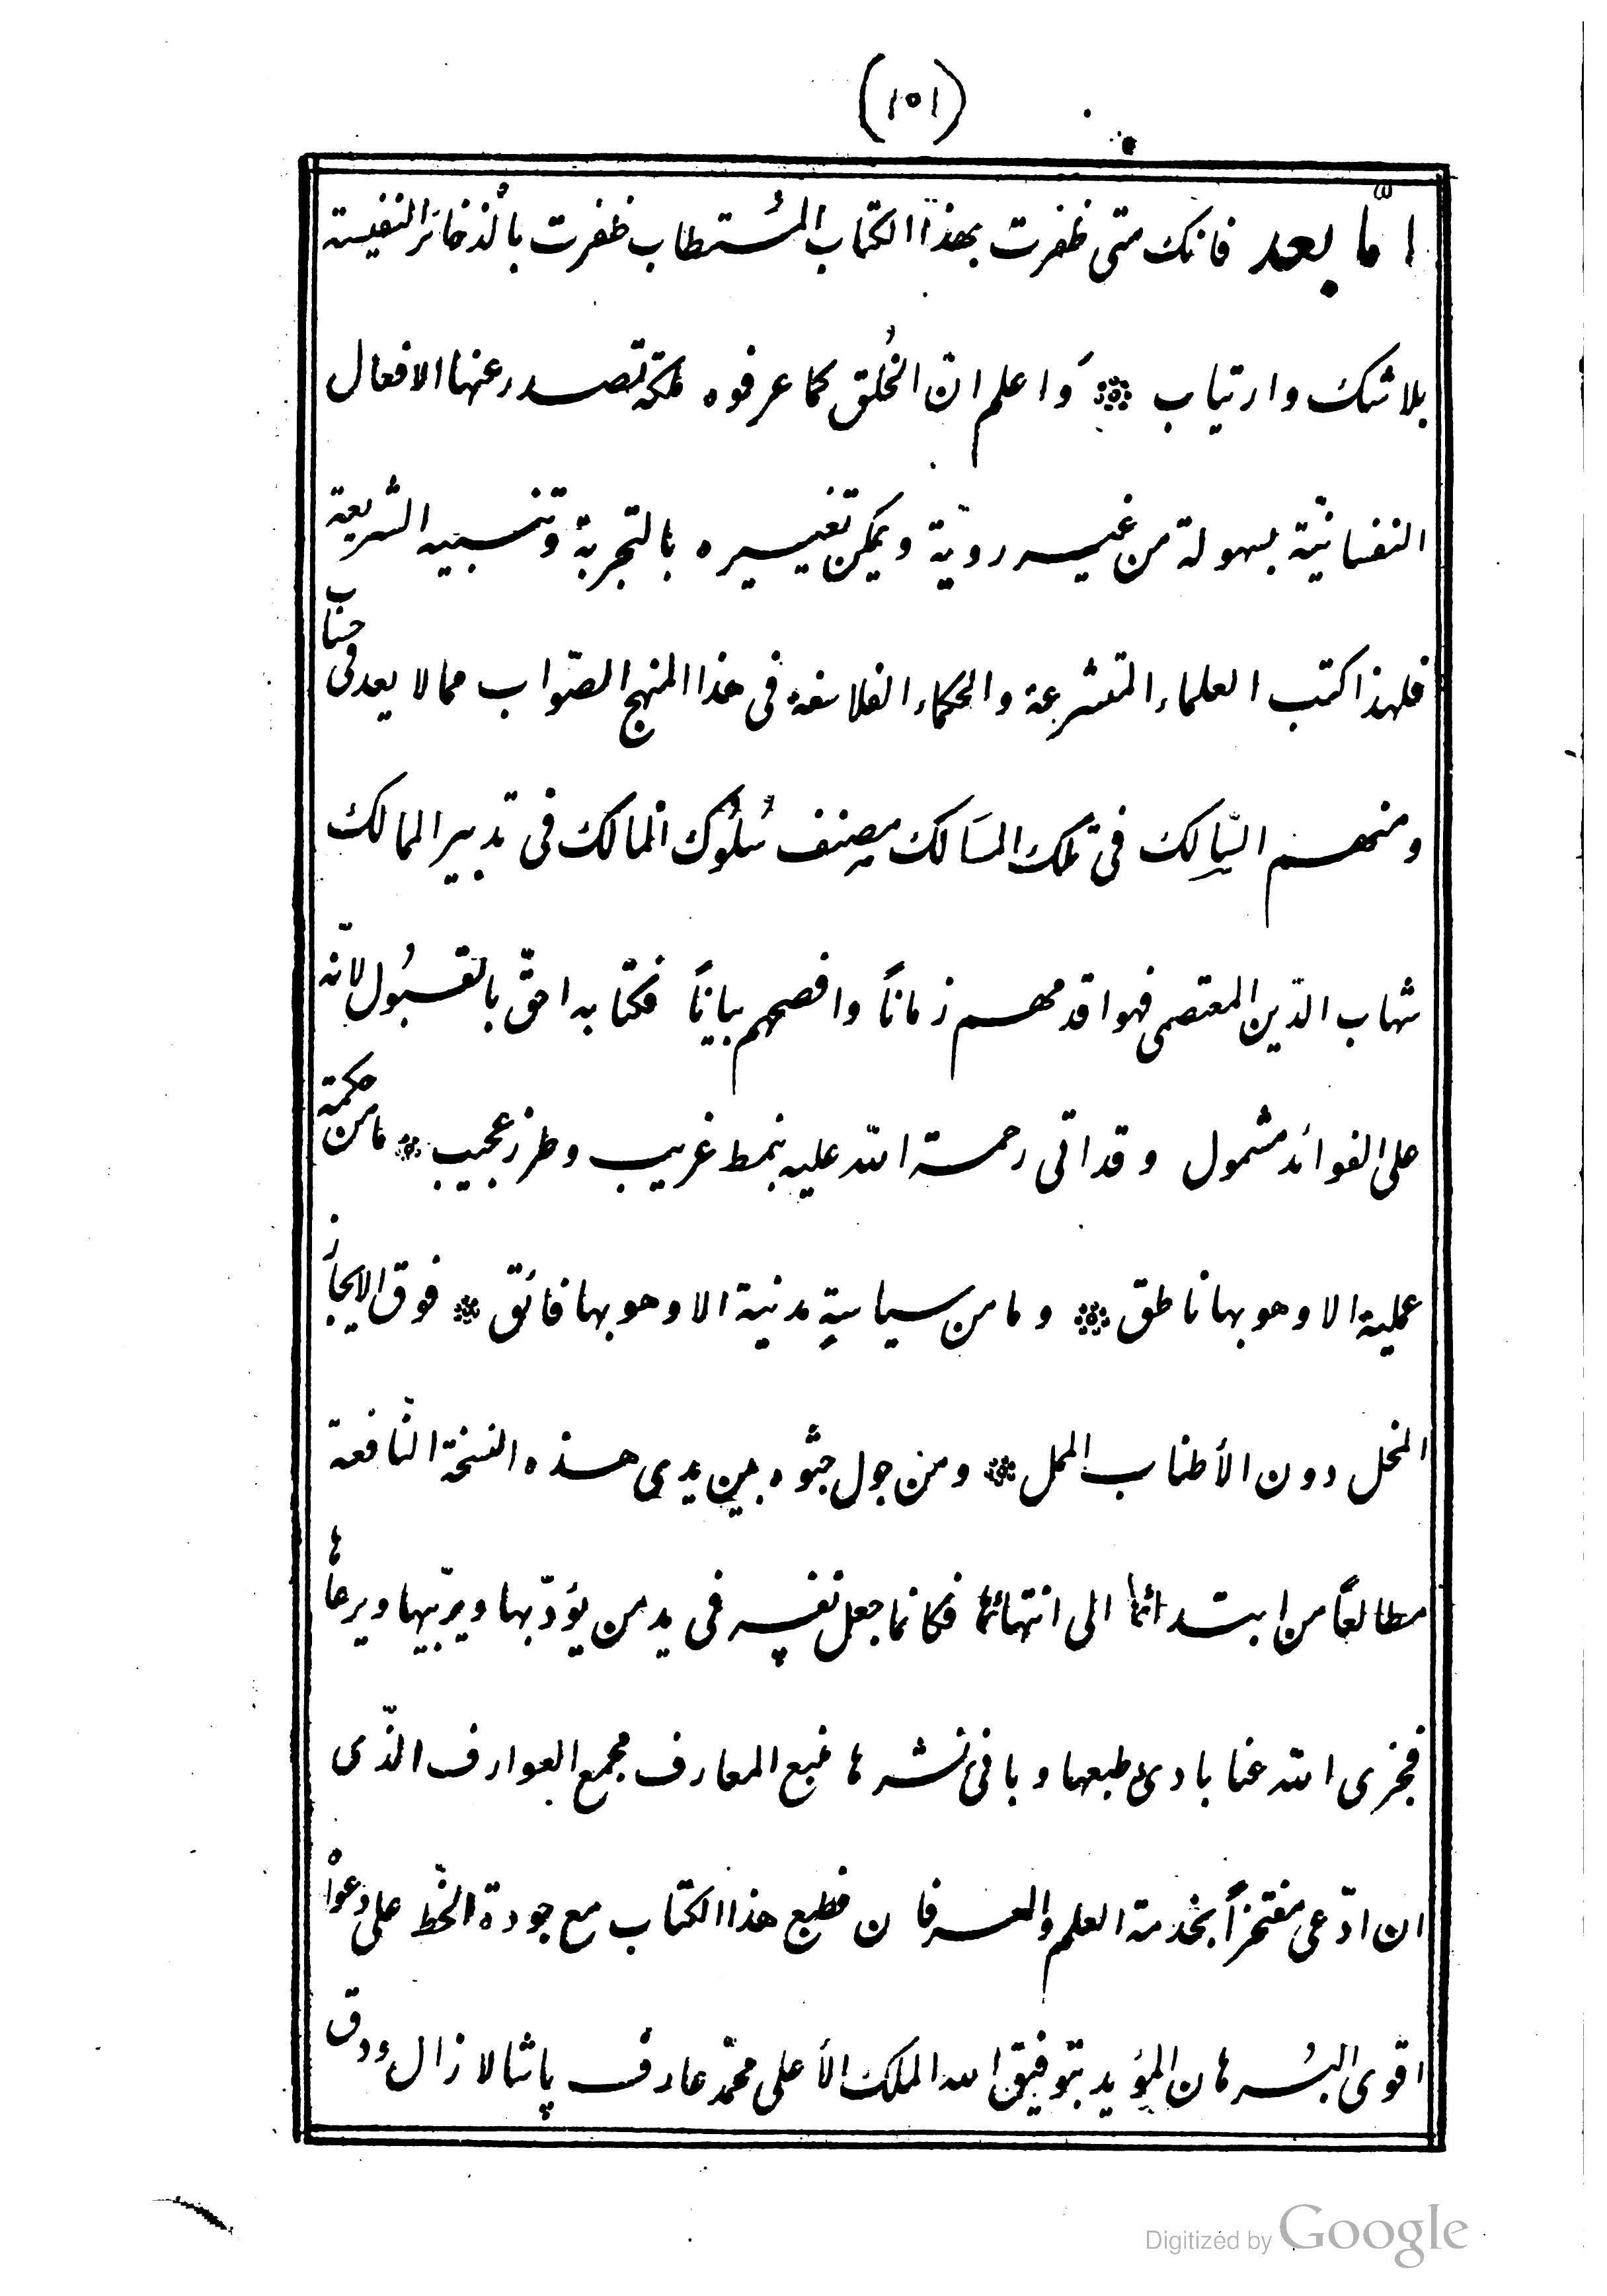 (١٥١)
امّا بعد فانك متى ظفرت بهذا الكتاب المُستطاب ظفرت بالذخائر النفيسة
بلا شك وارتياب وَاعلم انّ الخُلق كما عرفوه ملكة تصدر عنها الافعال
النفسانيّة بسهولة من غير رويّة ويمكن تغييره بالتجربة وتنبيه الشريعة
فلهذا كتب العلماء المتشرعة والحكماء الفلاسفة فى هذا المنهج الصّواب مما لا يعد فى حساب
ومنهم السّالك فى تلك المسَالك مصنف سُلُوك المالك فى تدبير الممالك
شهاب الدّين المعتصمى فهو اقدمهم زماناً وافصحهم بياناً فكتابه احقّ بالقبُول لانّه
على الفوائد مشمول وقد اتى رحمة اللّه عليه بنمط غريب وطرز عجيب مامن حكمة
عملية الا وهو بها ناطق وما من سياسةٍ مدنية الا وهو بها فائق فوق الايجاز
المخل دون الأطناب الممل ومن جول جثوه بين يدى هذه النسخة النّافعة
مطالعاً من ابتدائها الى انتهائها فكانما جعل نفسه فى يد من يؤدّبها ويربّيها ويرعاها
فجزى اللّه عنا بادئ طبعها وبافى نشرها منبع المعارف مجمع العوارف الّذى
ان ادّعى مفتخراً بخدمة العلم والعرفان فطبع هذا الكتاب مع جودة الخّط على دعواه
اقوى البُرهان المؤيد بتوفيق الله الملك الأعلى محمّد عارف پاشا لا زال ودق
Digitized by Google